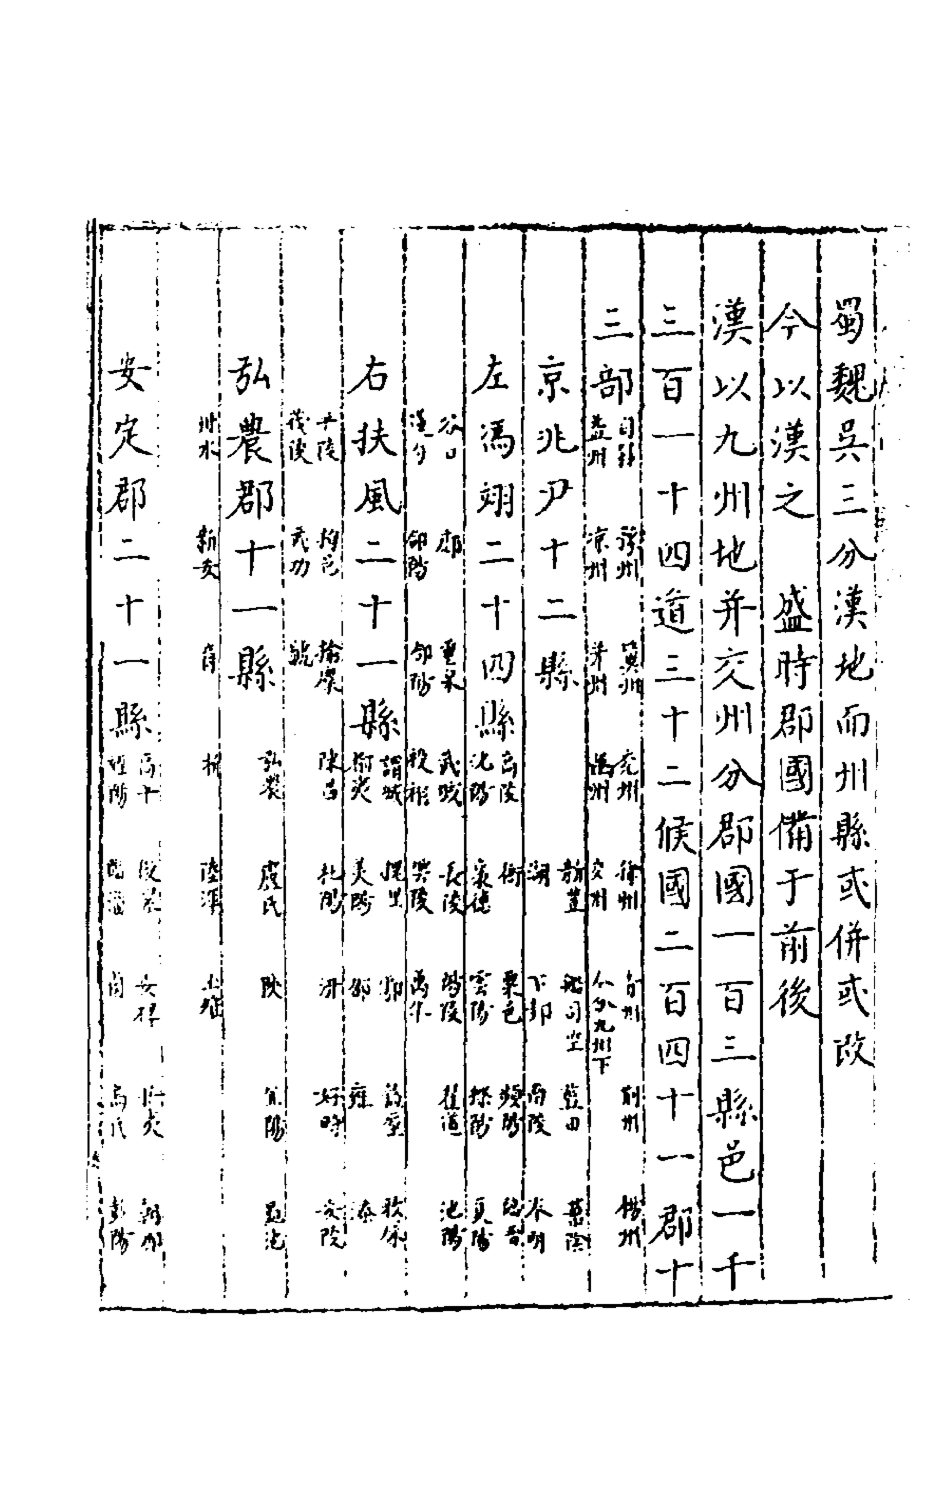 蜀魏吳三分漢地而州縣或併或改
今以漢之 盛時郡國備于前後
漢以九州地并交州分郡國一百三縣邑一千
三百一十四道三十二候國二百四十一郡十
三部 司隸 豫州 冀州 兗州 徐州 青州 荊州 揚州
益州 凉州 并州 幽州 交州 分九州下
京兆尹十二縣 新豐 船司空 藍田 華陰
湖 下邽 南陵 奉明
左馮翊二十四縣 高陵 衙 粟邑 頻陽 臨晉
沈陽 襄德 雲陽 櫟陽 夏陽
谷口 鄜 重泉 武城 長陵 陽陵 翟道 池陽
蓮勺 郃陽 祋祤 萬年
右扶風二十一縣 渭城 槐里 鄠 盩厔
美陽 郿 雍
平陵 栒邑 隃麋 陳倉 杜陽 汧 好畤 安陵
茂陵 武功 虢
弘農郡十一縣 弘農 盧氏 陝 宜陽 黽池
丹水 新安 商 析 陸渾 上雒
安定郡二十一縣 高平 安
涇陽 鹵 烏氏 彭陽 朝那